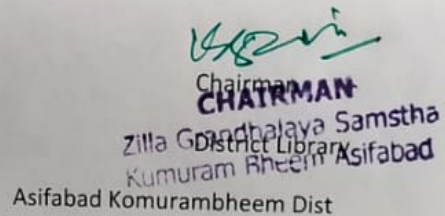 Chairman
CHAIRMAN
Zilla Grandhalaya Samstha
District Library
Kumuram Bheem Asifabad
Asifabad Komurambheem Dist